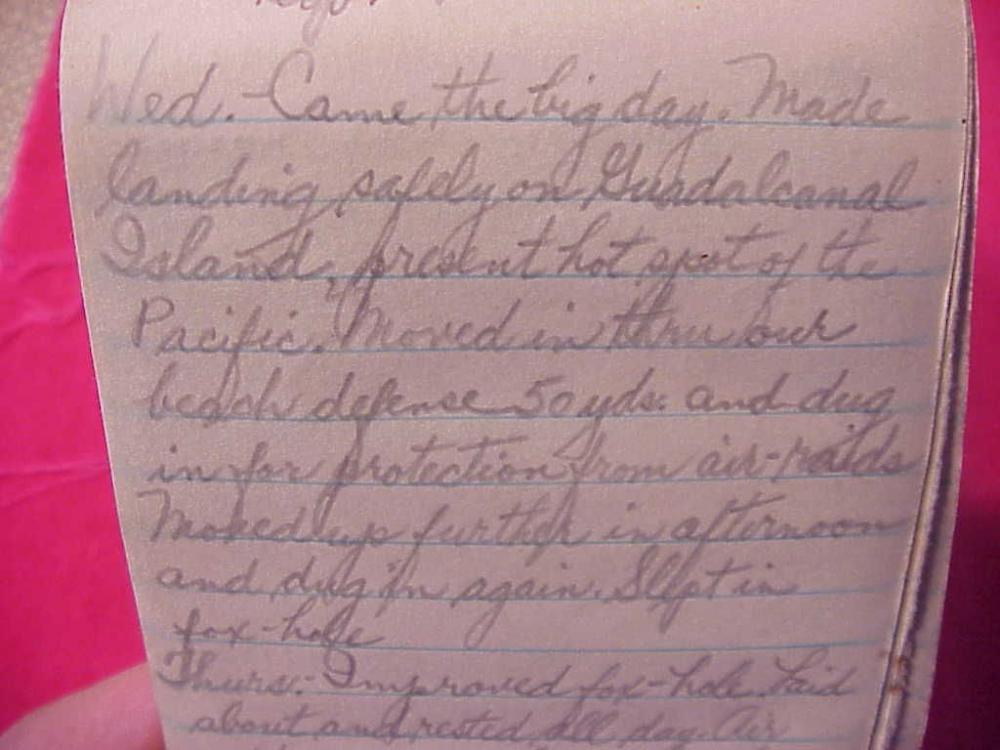 Wed. - Came the big day. Made
landing safely on Guadalcanal
Island, present hot spot of the
Pacific. Moved in thru our
beach defense 50 yds. and dug
in for protection from air-raids
Moved up further in afternoon
and dug in again. Slept in
fox-hole
Thurs. - Improved fox-hole. Laid
about and rested all day. Air